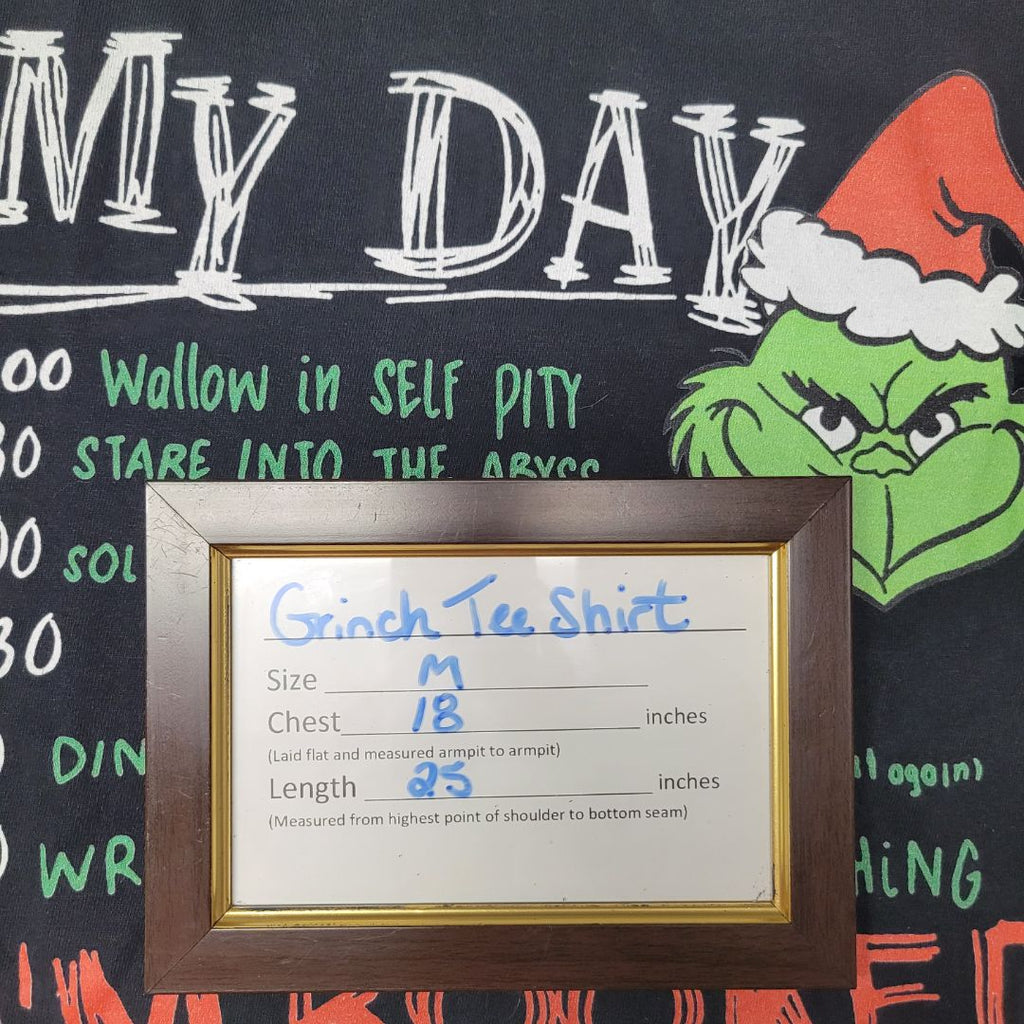 MY DAY
00 Wallow in SELF PITY
30 STARE INTO THE ABYSS
00 SOL
30
DIN
again)
WR HING
I'M BOOKED
Grinch Tee Shirt
Size M
Chest 18 inches
(Laid flat and measured armpit to armpit)
Length 25 inches
(Measured from highest point of shoulder to bottom seam)